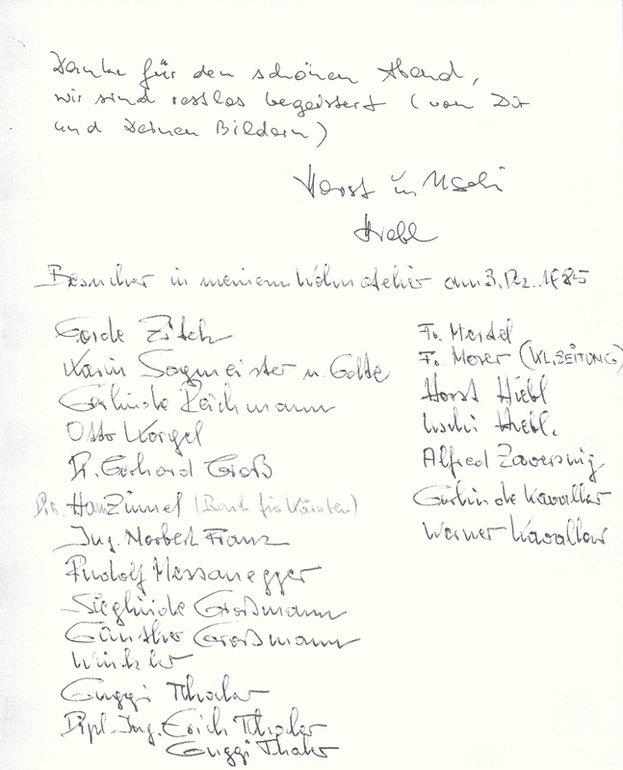 Danke für den schönen Abend,
wir sind restlos begeistert (von Dir
und Deinen Bildern)
Horst u. Uschi
Hiebl
Besucher in meinem Wohnatelier am 3. Dez. 1985
Gerde
Karin Sagmeister u. Gatte
Gerlinde Reichmann
Otto Korgel
Dr. Gerhard Groß
Dir. Hans Zimmel (Bank für Kärnten)
Ing. Norbert Franz
Rudolf Messanegger
Sieglinde Großmann
Günther Großmann
Winkler
Guggi Thaler
Dipl.-Ing. Erich Thaler
Guggi Thaler
Fr.
Fr. Moser (KL.ZEITUNG)
Horst Hiebl
Uschi Hiebl.
Alfred Zavernig
Gerlinde Kavallar
Werner Kavallar